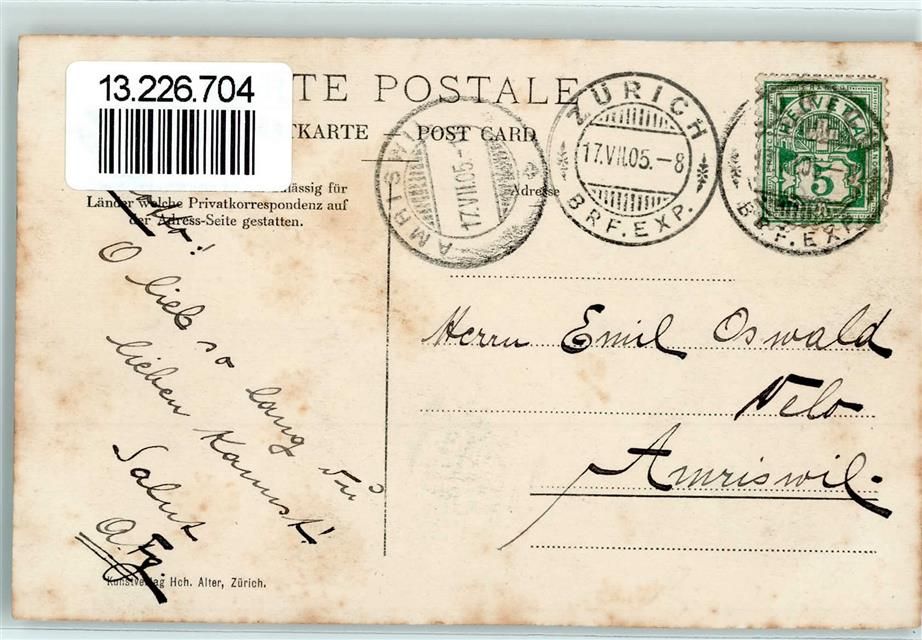 13.226.704
TE POSTALE
TKARTE
POST CARD
ässig für
Länder welche Privatkorrespondenz auf
der Adress-Seite gestatten.
Adresse
AMRISW
17.VII.05.-
ZÜRICH
17.VII.05.-8
BRF.EXP.
HELVETIA
5
BRF.EXP.
O lieb so lang Du
lieben kannst!
Salut
Herrn Emil Oswald
Velo
Amriswil.
Kunstverlag Hch. Alter, Zürich.